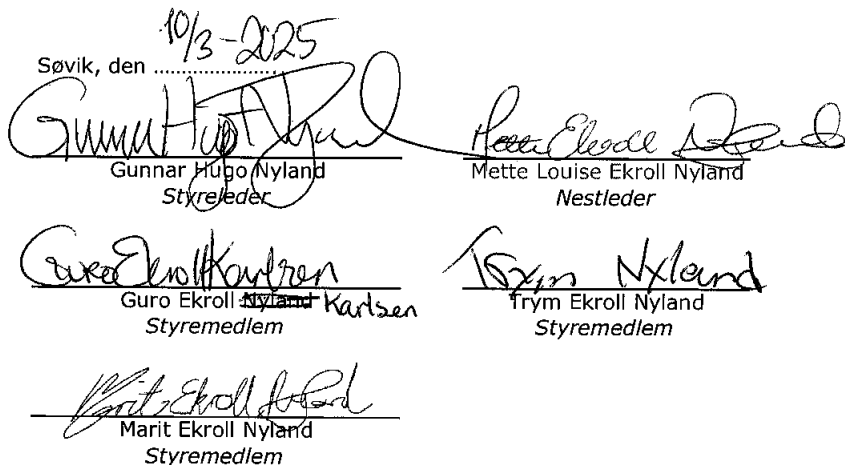 10/3-2025
Søvik, den ........................
Gunnar Hugo Nyland
Gunnar Hugo Nyland
Styreleder
Mette Ekroll Nyland
Mette Louise Ekroll Nyland
Nestleder
Guro Ekroll Karlsen
Guro Ekroll Nyland Karlsen
Styremedlem
Trym Nyland
Trym Ekroll Nyland
Styremedlem
Marit Ekroll Nyland
Marit Ekroll Nyland
Styremedlem